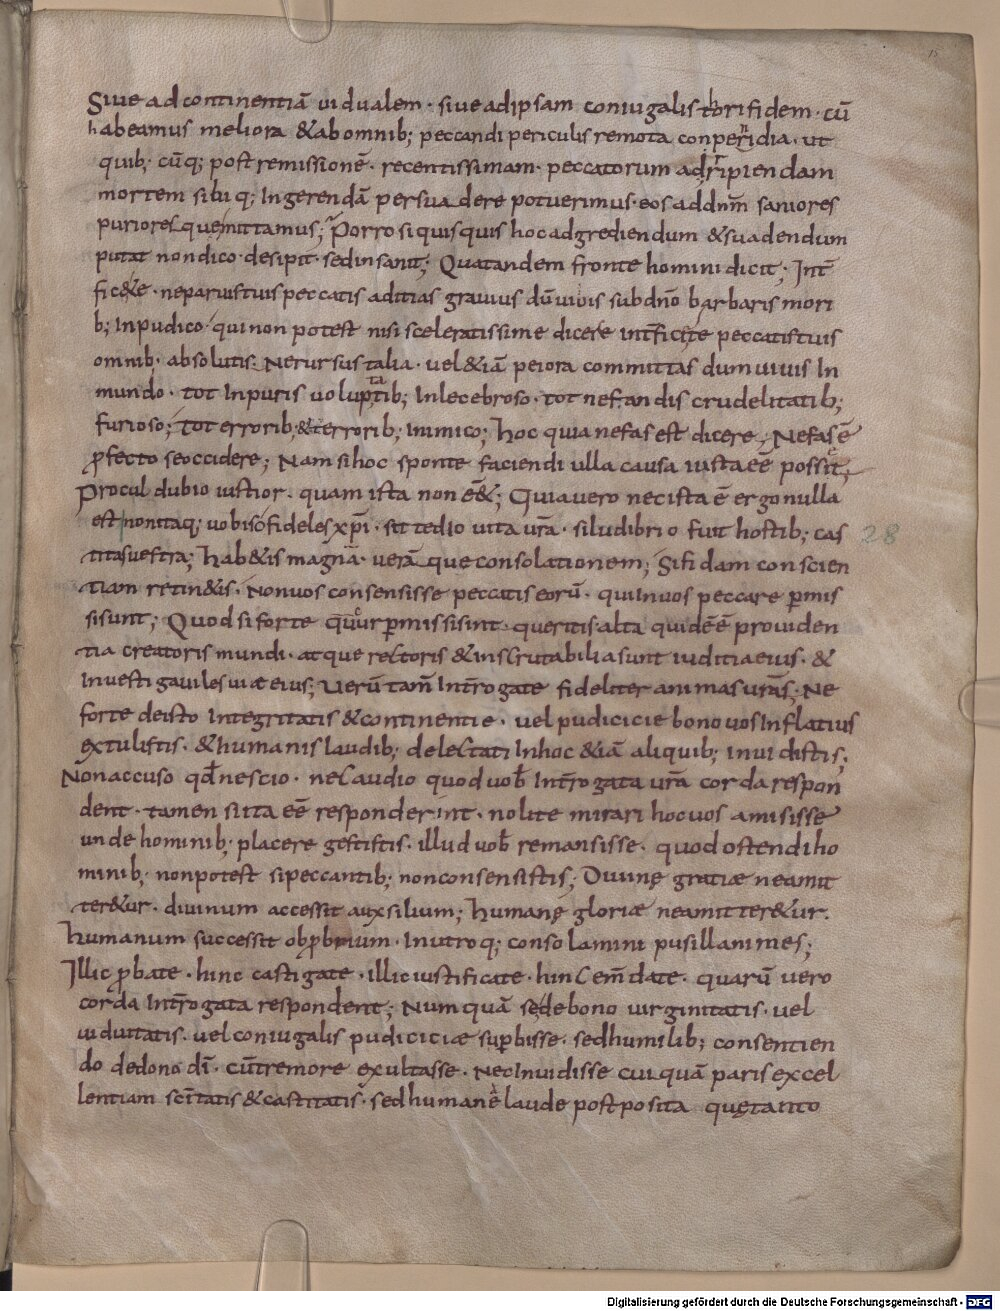 Siue ad continentiā uidualem · siue ad ipsam coniugalis thori fidem · cū
habeamus meliora &ab omnib; peccandi periculis remota conpendia · ut
quib; cūq; post remissionē · recentissimam · peccatorum adrripiendam
mortem sibiq; Ingerendā persuadere potuerimus · eos ad dnm̄ saniores
puriores quemittamus; Porro si quisquis hoc adgrediendum &suadendum
putat non dico · desipit · sed insanit; Qua tandem fronte homini dicit; Int̄
fic&e · ne paruis tuis peccatis adicias grauius dū uiuis sub dn̄o barbaris mori
b; Inpudico · qui non potest nisi sceleratissime dicere int̄ficite peccatis tuis
omnib · absolutis · Ne rursus talia · uel &iā peiora committas dum uiuis In
mundo · tot Inpuris uoluptatib; Inlecebroso · tot nefandis crudelitatib;
furioso; tot errorib; &terrorib; inimico; hoc quia nefas est dicere; Nefas ē
p̄fecto se occidere; Nam si hoc sponte faciendi ulla causa iusta eē possit;
Procul dubio iustior · quam ista non eē&; Quia uero nec ista ē ergo nulla
est non itaq; uobis o fideles xp̄i · sit tedio uita ur̄a · si ludibrio fuit hostib; cas
titas uestra; hab&is magnā · uerā que consolationem; Si fidam conscien
tiam retin&is · Non uos consensisse peccatis eorū · qui In uos peccare p̄mis
si sunt; Quod si forte cur p̄missi sint · queritis alta quidē ē prouiden
tia creatoris mundi · atque rectoris &inscrutabilia sunt iuditia eius · &
Inuestigauiles uiæ eius; Uerū tam̄ Int̄rogate fideliter animas ur̄as · Ne
forte de isto Integritatis &continentie · uel pudicicie bono uos Inflatius
extulistis · &humanis laudib; delectati In hoc &iā aliquib; inuidistis;
Non accuso qd̄ nescio · nec audio quod uob̄ Int̄rogata ur̄a corda respon
dent · tamen si ita eē responderint · nolite mirari hoc uos amisisse
unde hominib; placere gestistis · illud uob̄ remansisse · quod ostendi ho
minib; non potest si peccantib; non consensistis; Diuinę gratiæ ne amit
ter&ur · diuinum accessit auxsilium; humanę gloriæ ne amitter&ur ·
humanum successit obp̄brium · In utroq; consolamini pusillanimes;
Illic p̄bate · hinc castigate · illic iustificate · hinc em̄date · quarū uero
corda Int̄rogata respondent; Numquā se de bono uirginitatis · uel
uiduitatis · uel coniugalis pudiciciæ sup̄bisse · sed humilib; consentien
do de dono dī · cū tremore exultasse · Nec Inuidisse cuiquā paris excel
lentiam scīt̄atis &castitatis · sed humanę laude postposita quę tanto
28
Digitalisierung gefördert durch die Deutsche Forschungsgemeinschaft - DFG